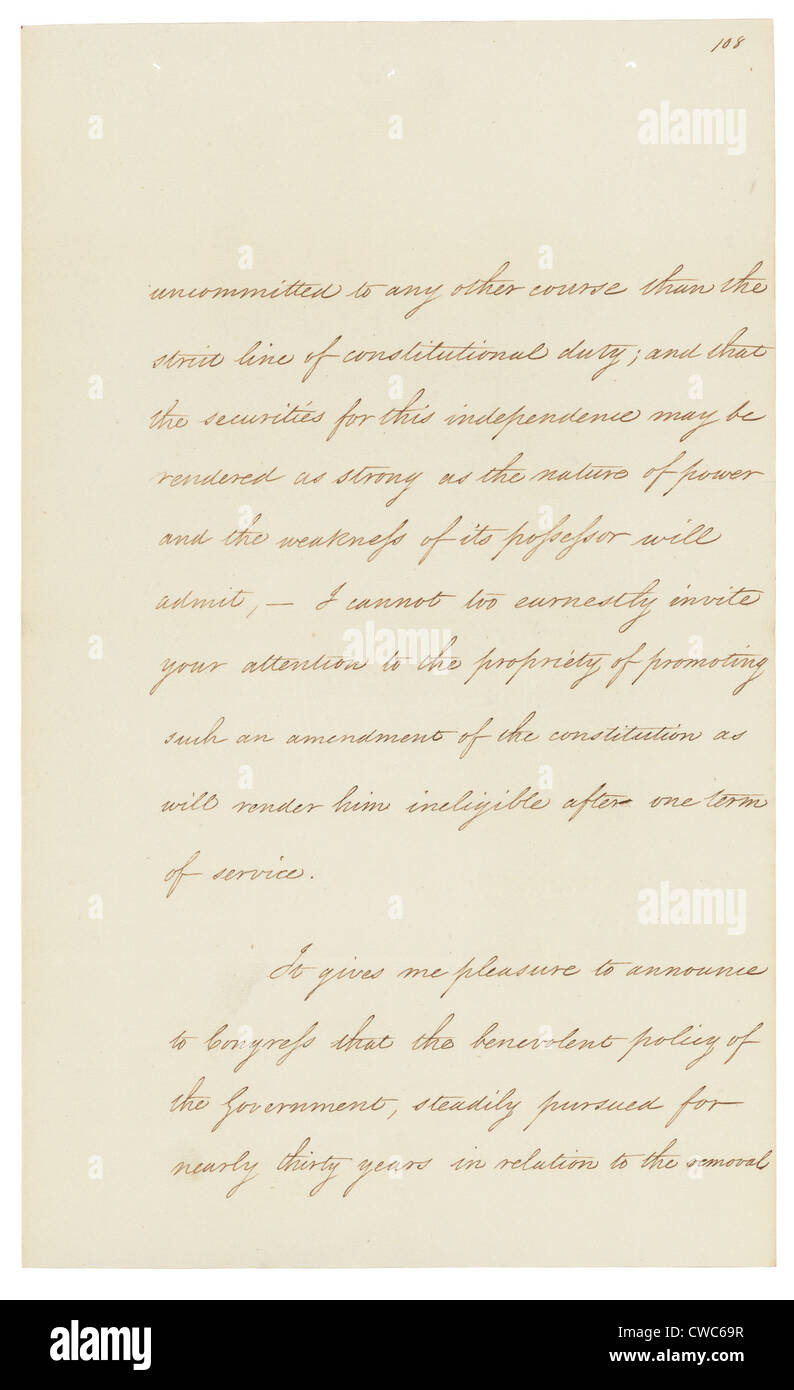 108
uncommitted to any other course than the
strict line of constitutional duty; and that
the securities for this independence may be
rendered as strong as the nature of power
and the weakness of its possessor will
admit, — I cannot too earnestly invite
your attention to the propriety of promoting
such an amendment of the constitution as
will render him ineligible after one term
of service.
It gives me pleasure to announce
to Congress that the benevolent policy of
the Government, steadily pursued for
nearly thirty years in relation to the removal
a
a
alamy
a
a
a
a
a
a
a
alamy
a
a
a
a
alamy
a
a
a
a
alamy
Image ID: CWC69R
www.alamy.com